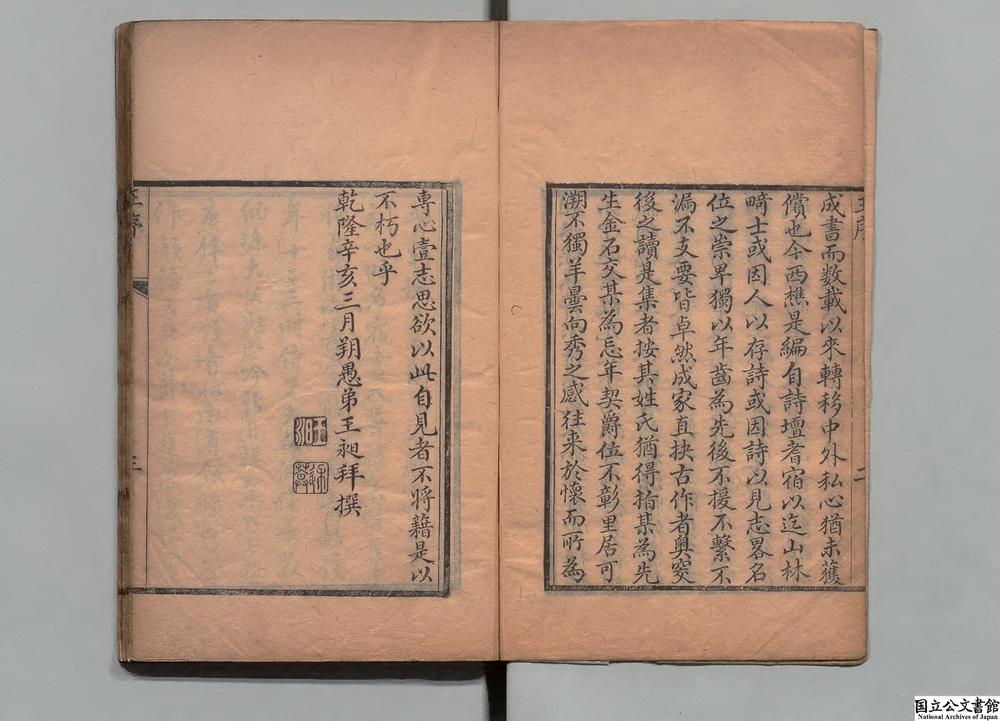 成書而數載以來轉移中外私心猶未獲
償也今西樵是編自詩壇耆宿以迄山林
畸士或因人以存詩或因詩以見志畧名
位之崇卑獨以年齒為先後不援不繫不
漏不支要皆卓然成家直抉古作者奧窔
後之讀是集者按其姓氏猶得指某為先
生金石交某為忘年契爵位不彰里居可
溯不獨羊曇向秀之感往来於懷而所為
專心壹志思欲以此自見者不將藉是以
不朽也乎
乾隆辛亥三月朔愚弟王昶拜撰
王昶
王序
二
王序
三
国立公文書館
National Archives of Japan